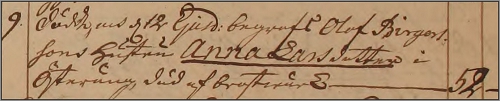 9. Dödde, ms d 12 Ejusd: begrofs Olof Birgers-
sons Hustru Anna Larsdotter i
Österäng, död af bröstvärk 52.